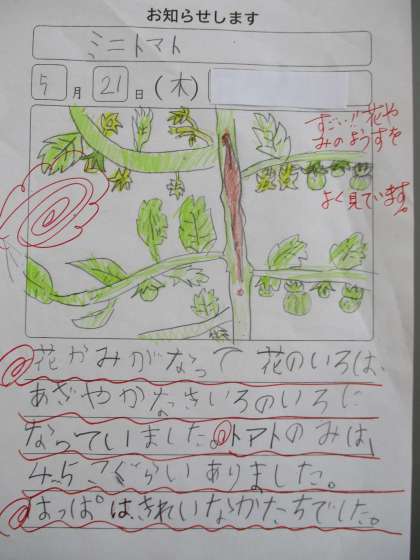 お知らせします
ミニトマト
5月21日(木)
すごい!!花や
みのようすを
よく見ています。
花かみがなって 花のいろは、
あざやかなきいろのいろに
なっていました。トマトのみは、
4~5こぐらいありました。
はっぱは、きれいなかたちでした。